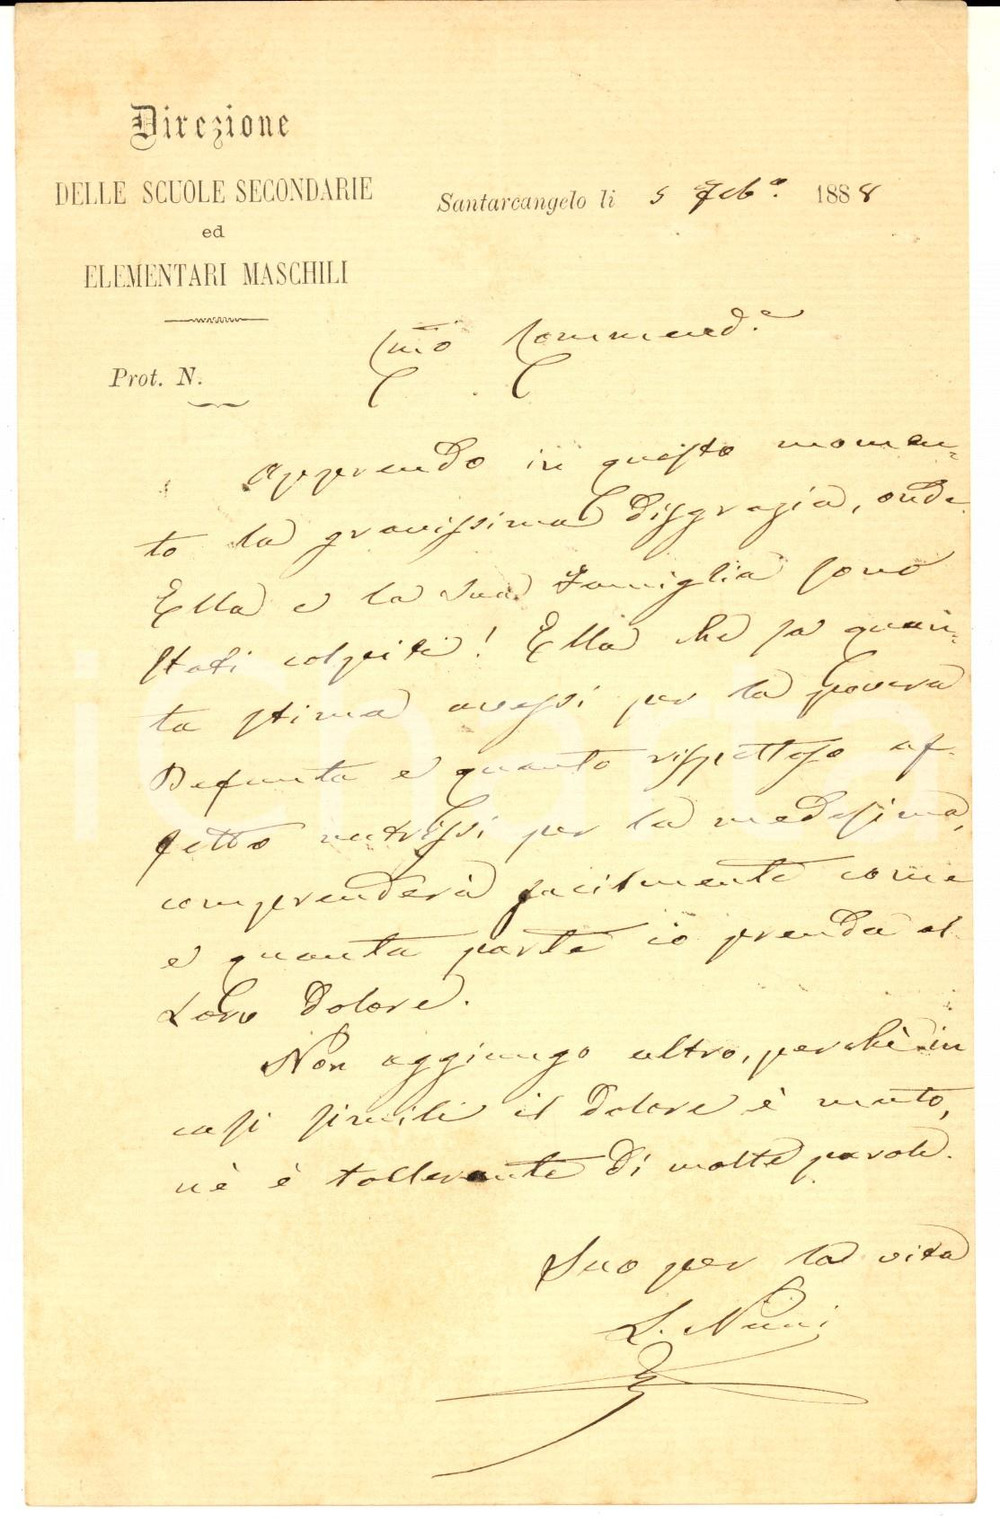 Direzione
DELLE SCUOLE SECONDARIE
ed
ELEMENTARI MASCHILI
Prot. N.
Santarcangelo li 5 Febº. 1888
Commend.e
Apprendo in questo momen-
to la gravissima disgrazia, onde
Ella e la sua Famiglia sono
stati colpiti! Ella che sa quan-
ta stima avessi per la povera
Defunta e quanto rispettoso af-
fetto nutrissi per la medesima,
comprenderà facilmente come
e quanta parte io prenda al
Loro dolore.
Non aggiungo altro, perchè in
casi simili il dolore è muto,
nè è tollerante di molte parole.
Suo per la vita
L. Nini